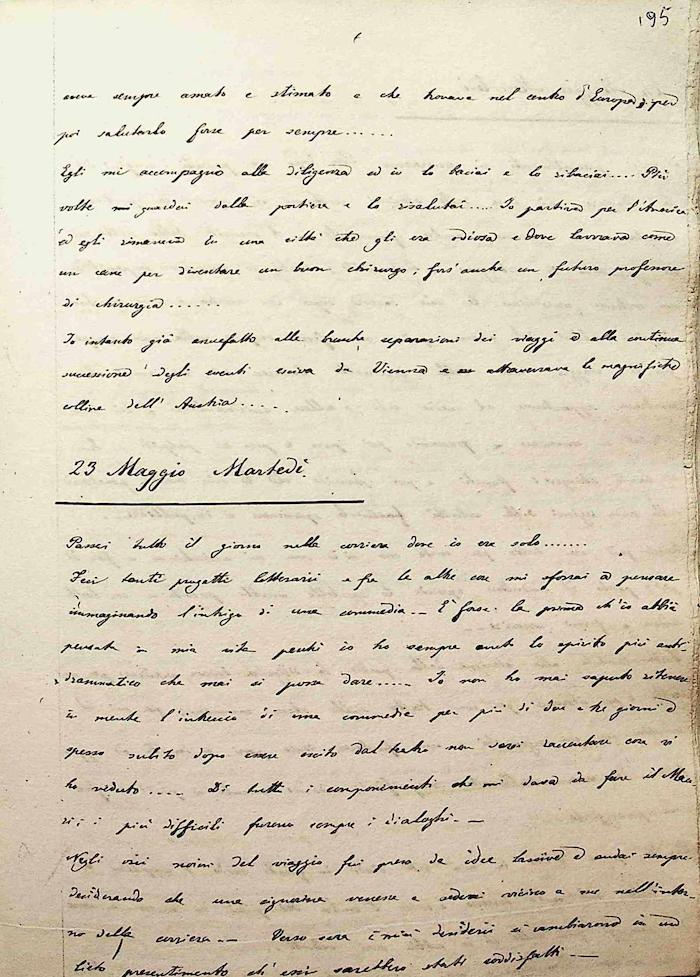 195
aveva sempre amato e stimato e che trovava nel centro d'Europa per
poi salutarlo forse per sempre......
Egli mi accompagnò alla diligenza ed io lo baciai e lo ribaciai.... Più
volte mi guardai dalla portiera e lo risalutai.... Io partiva per l'America
ed egli rimaneva in una città che gli era odiosa e dove lavorava come
un cane per diventare un buon chirurgo; fors'anche un futuro professore
di chirurgia......
Io intanto già assuefatto alle brusche separazioni dei viaggi e alla continua
successione degli eventi usciva da Vienna e attraversava le magnifiche
colline dell'Austria.....
23 Maggio Martedì.
Passai tutto il giorno nella corriera dove io era solo.......
Feci tanti progetti letterarii e fra le altre cose mi sforzai a pensare
immaginando l'intrigo di una commedia — È forse la prima ch'io abbia
pensata in mia vita perchè io ho sempre avuto lo spirito più anti
drammatico che mai si possa dare..... Io non ho mai saputo ritenere
in mente l'intreccio di una commedia per più di due o tre giorni e
spesso subito dopo essere uscito dal teatro non saprei raccontare cosa vi
ho veduto..... Di tutti i componimenti che mi dava da fare il
i più difficili furono sempre i dialoghi. —
Negli ozii del viaggio fui preso da idee lascive e andai sempre
desiderando che una signorina venisse a sedersi vicino a me nell'inter-
no della corriera — Verso sera i miei desiderii si cambiarono in un
lieto presentimento ch'essi sarebbero stati soddisfatti —